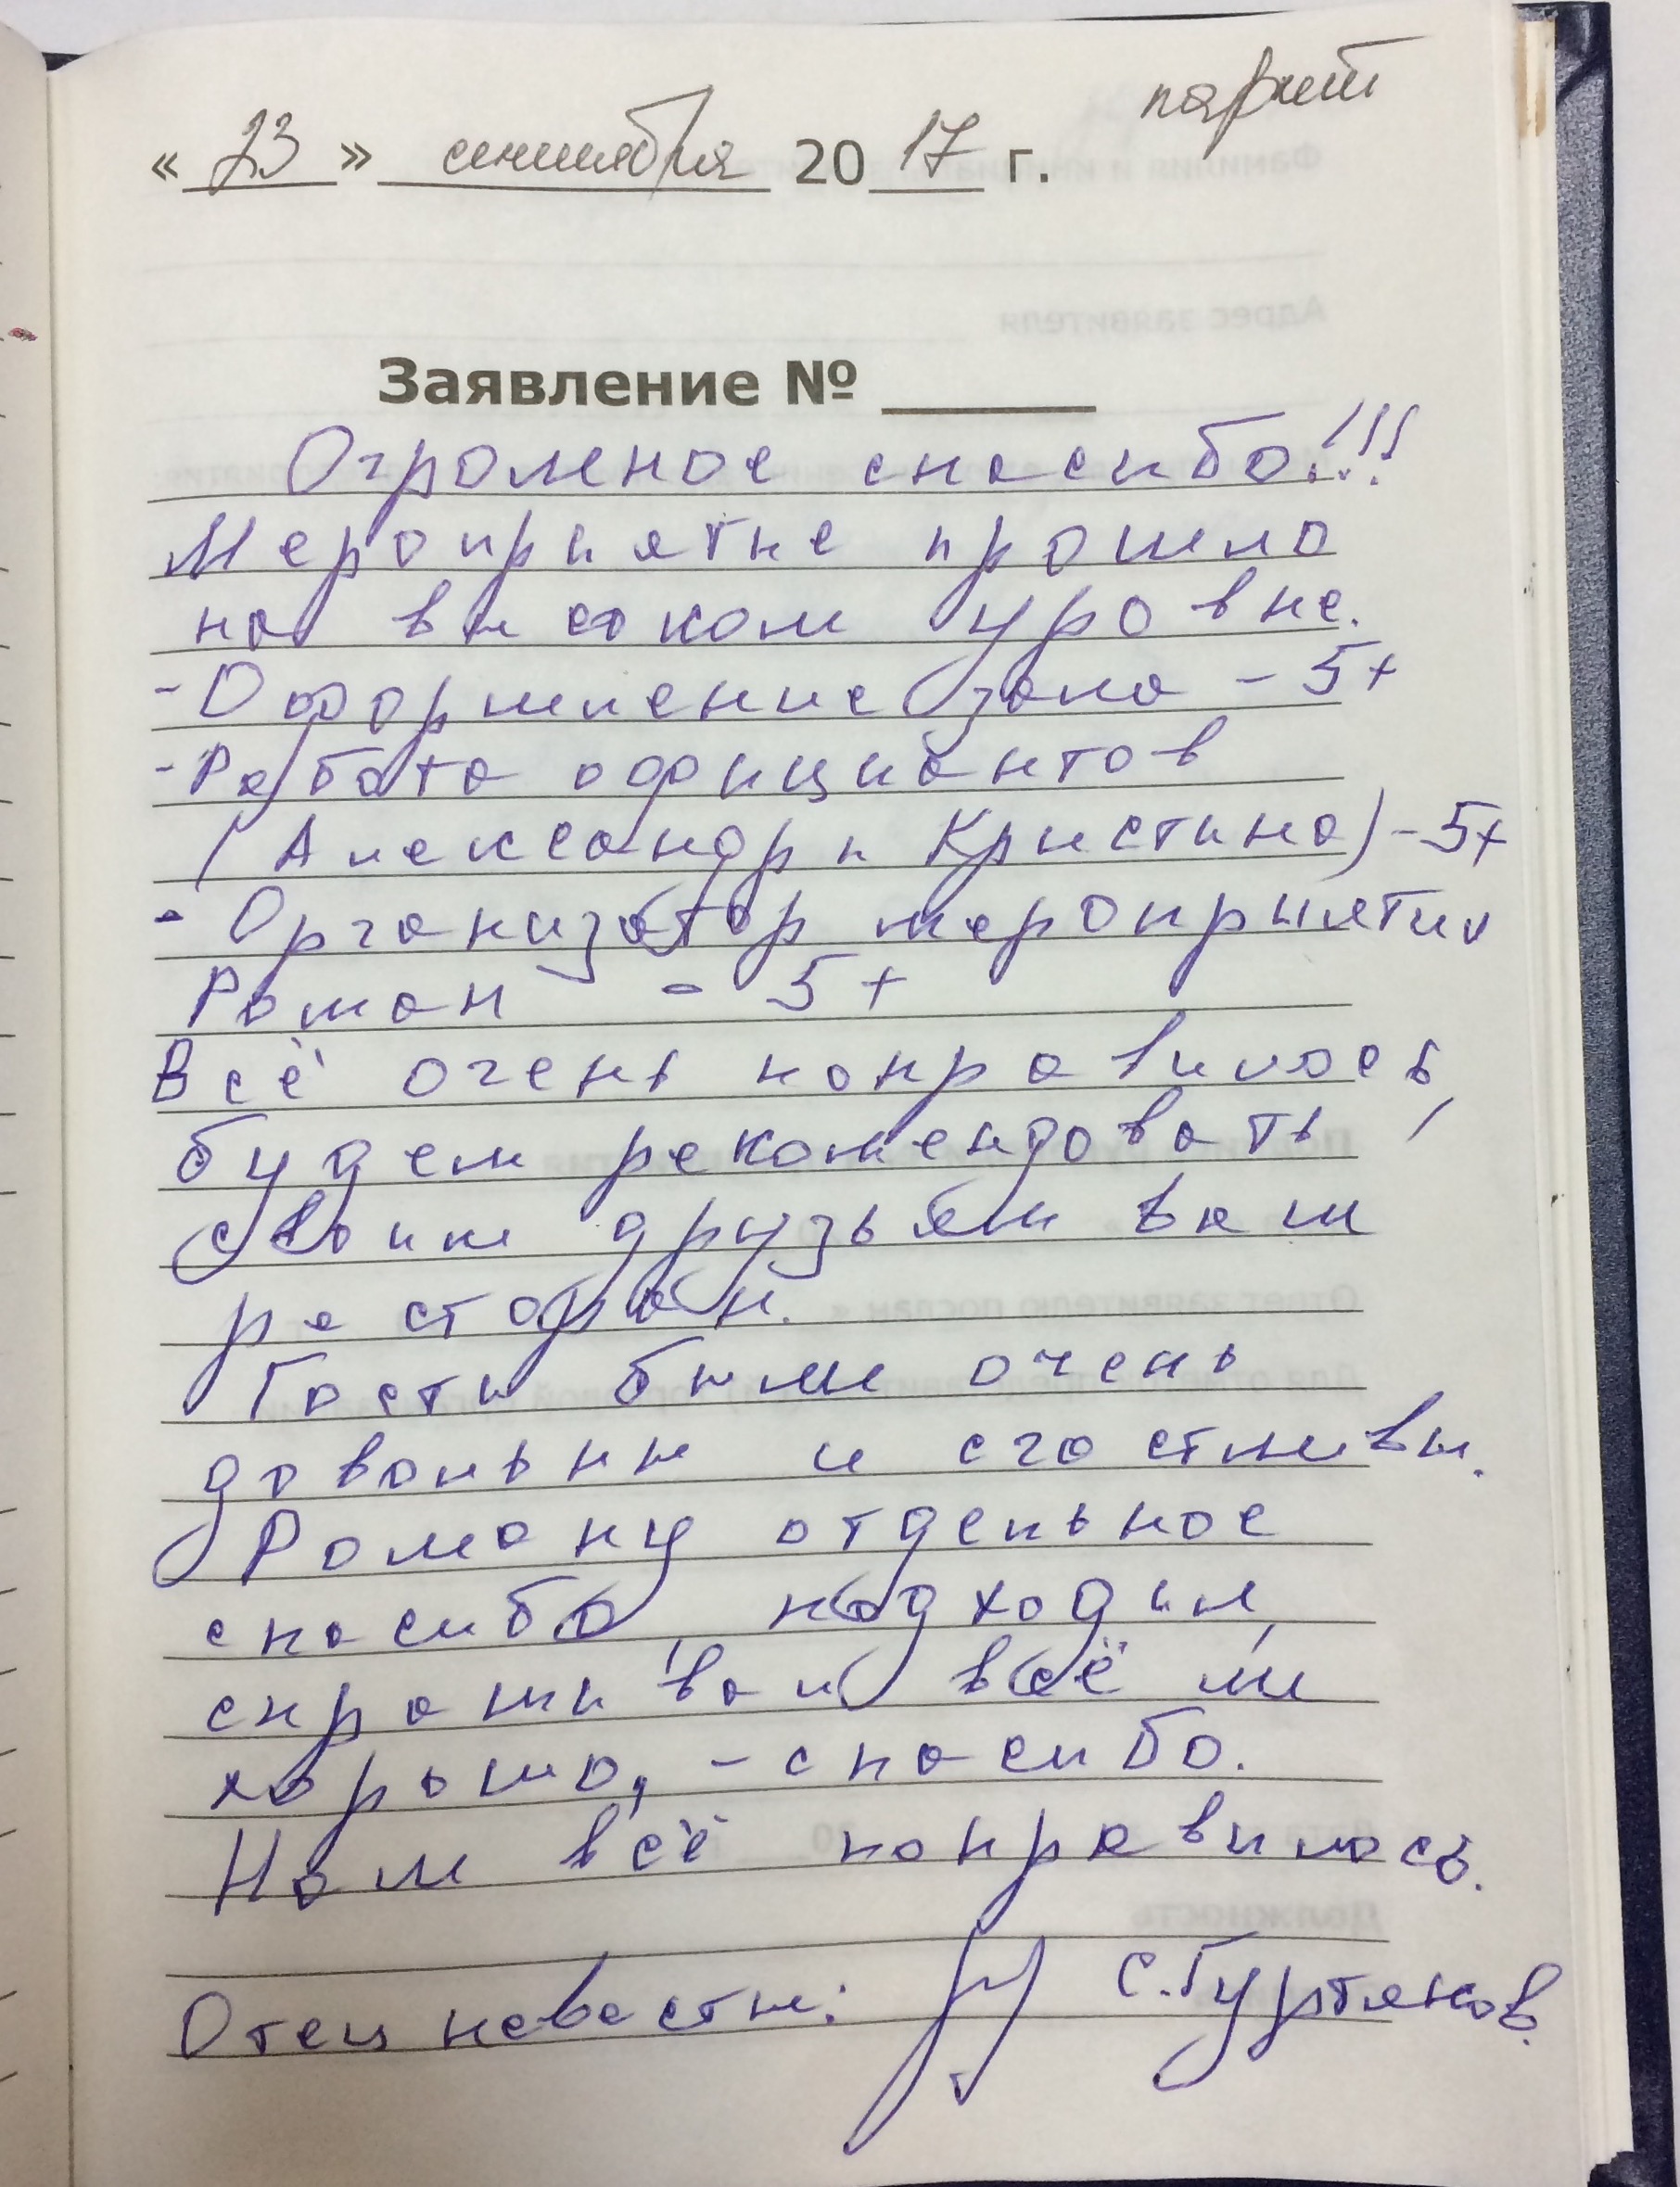 паркет
« 23 » сентября 2017 г.
Заявление № ____
Огромное спасибо!!!
Мероприятие прошло
на высоком уровне.
- Оформление зала - 5+
- Работа официантов
(Александр и Кристина) - 5+
- Организатор мероприятия
Роман - 5+
Всё очень понравилось,
будем рекомендовать
своим друзьям ваш
ресторан.
Гости были очень
довольны и счастливы.
Роману отдельное
спасибо, подходил,
спрашивал всё ли
хорошо, - спасибо.
Нам всё понравилось.
Отец невесты: С. Гуртяков.